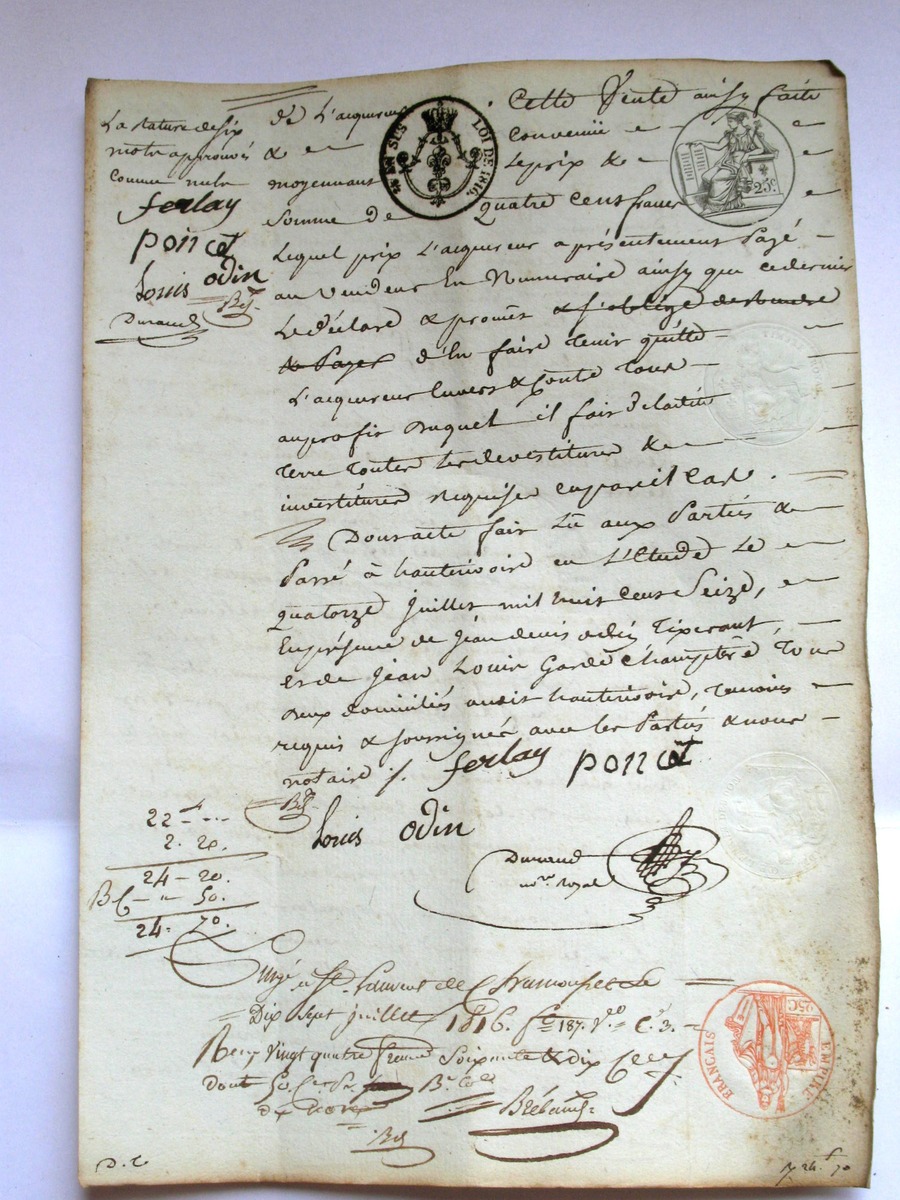 La rature de six
mots approuvés
comme nuls
ferlay
poncet
Louis odin
Durand
de L'acquereur
Cette Vente ainsy faite
& convenüe
moyennant Le prix &
somme de quatre cens francs
EN SUS LOI DE 1816.
25c.
Lequel prix L'acquereur a présentement Payé
au Vendeur En Numeraire ainsy que ce dernier
Le déclare & promet & s'obligé
& Payer d'En faire tenir quitte
L'acquereur Envers & contre Tous
au profit duquel il fait
Terre toutes les devestitures &
investitures requises en pareil Cas.
Dont acte fait Lû aux Parties &
Passé à hauterivoire en L'Etude Le
quatorze juillet mil huit cent Seize, en
En présence de jean denis odin Tixerant,
et de jean Louis Garde Champêtre, Tous
deux domiciliés audit hauterivoire, Temoins
requis & soussignés avec les Parties & nous
notaire ./.
ferlay poncet
Louis odin
Durand
nore. Royal
22 - ...
2. 20.
24 - 20.
50.
24 - 70.
à St. Laurent de Chamousset Le
Dix Sept juillet 1816. fo. 187. Vo. C. 3.
Reçu Vingt quatre francs Soixante & dix Ces
Dont 50 Ces
EMPIRE FRANÇAIS
25C
D. C
24 f 70